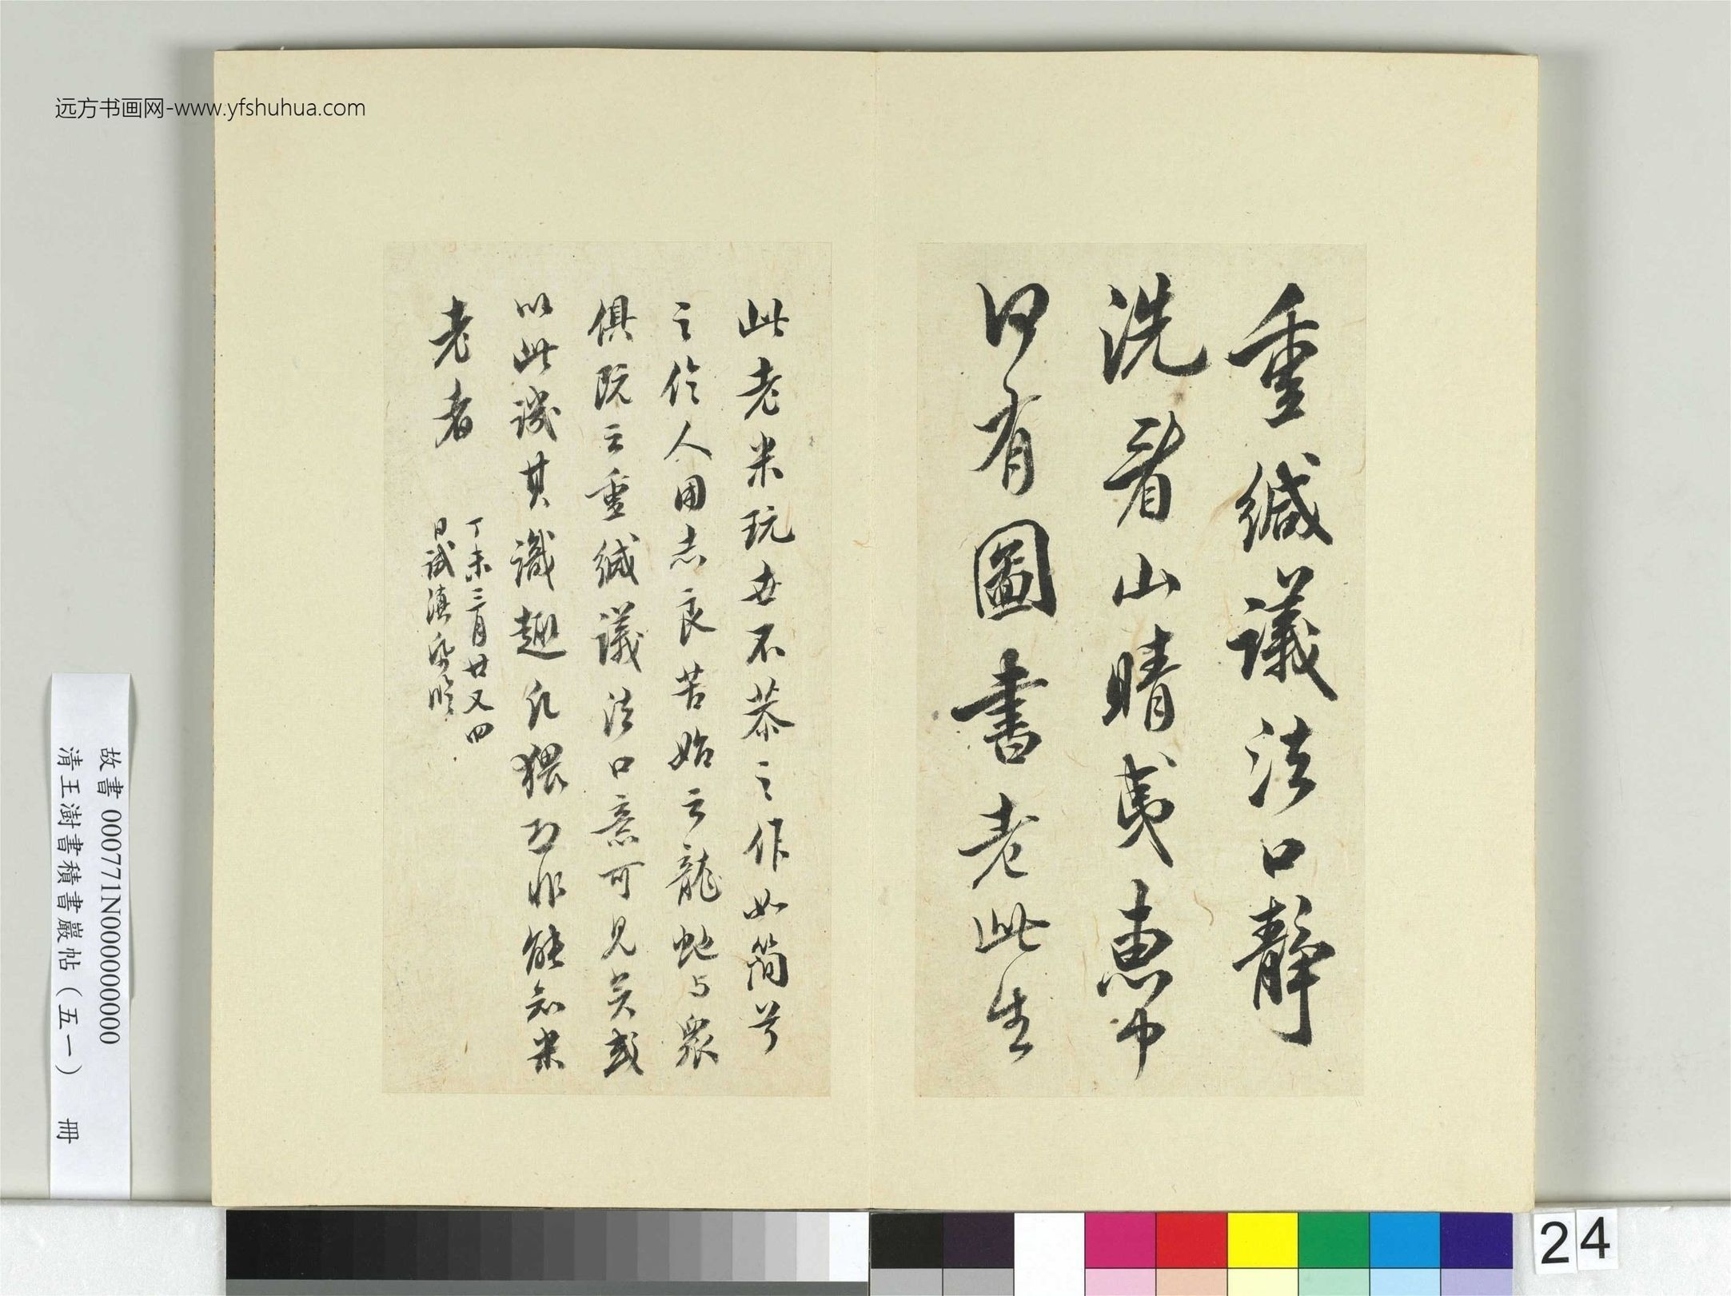 远方书画网-www.yfshuhua.com
重緘議法口靜
洗看山晴夷惠中
何有圖書老此生
此老米玩世不恭之作如簡兮
之伶人用志良苦始云龍蛇與衆
俱既云重緘議法口意可見矣或
以此譏其識趣凡猥乃非能知米
老者
丁未三月廿又四
日試
故書 000771N000000000
清王澍書積書巖帖(五一) 冊
24